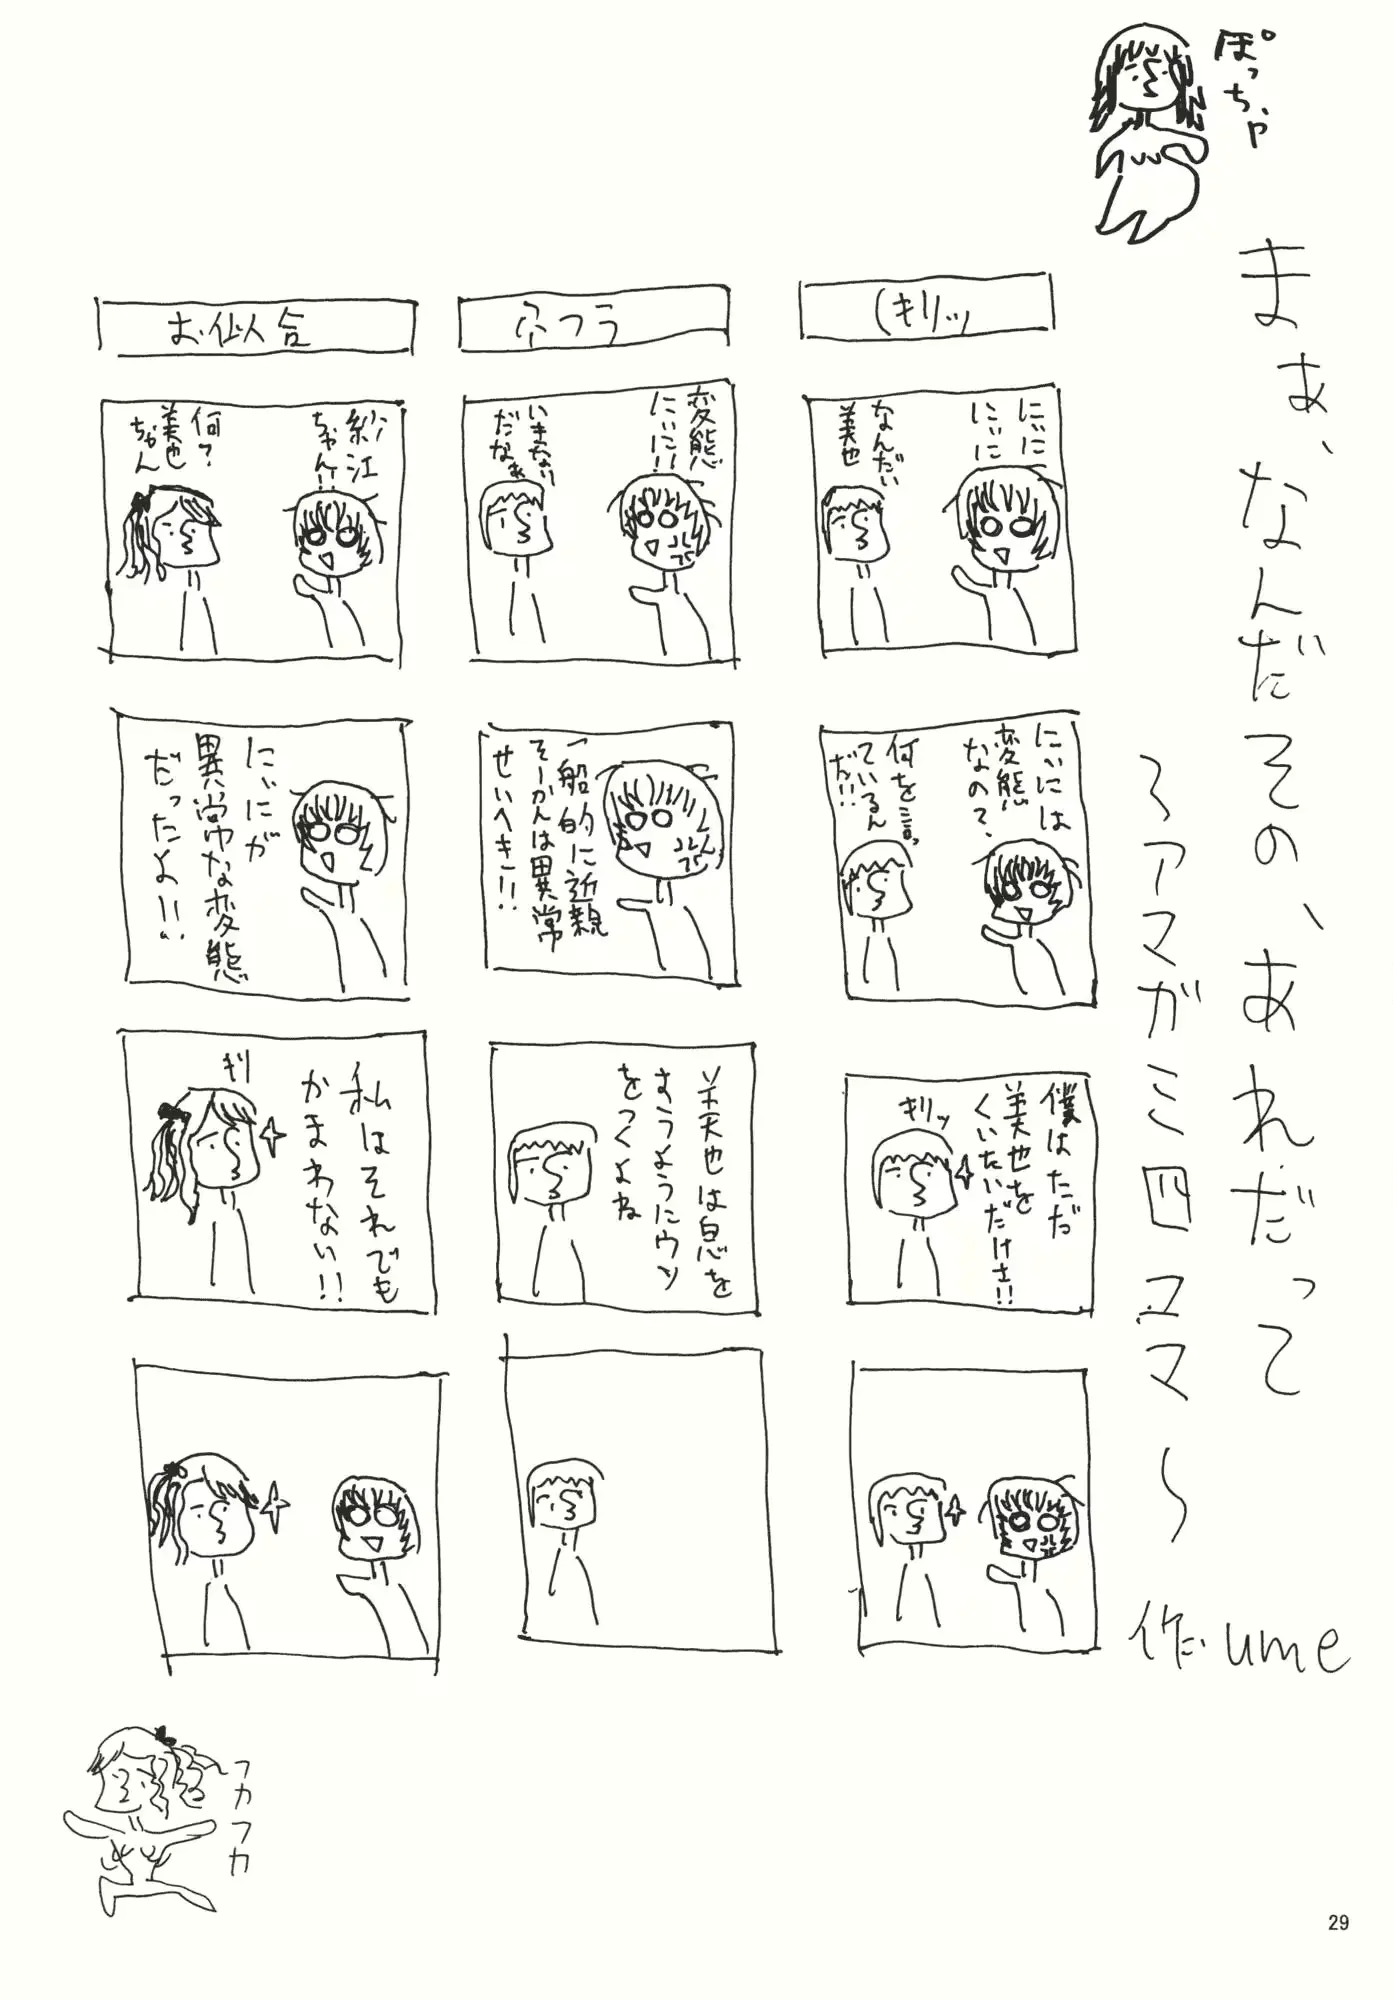 ぽっちゃ
まぁ、なんだその、あれだって
～アマガミ四コマ～
作:ume
(キリッ
にぃに
にぃに
なんだい
美也
にぃには
変態
なの?
何を言っ
ているん
だ!!
僕はただ
美也を
くいたいだけさ!!
キリッ
変態
にぃに!!
いきなり
だなぁ
一般的に近親
そーかんは異常
せいへき!!
美也は息を
すうようにウソ
をつくよね
お似合
紗江
ちゃん!!
何?
美也
ちゃん
にぃにが
異常な変態
だったよ!!
私はそれでも
かまわない!!
キリ
フカフカ
29